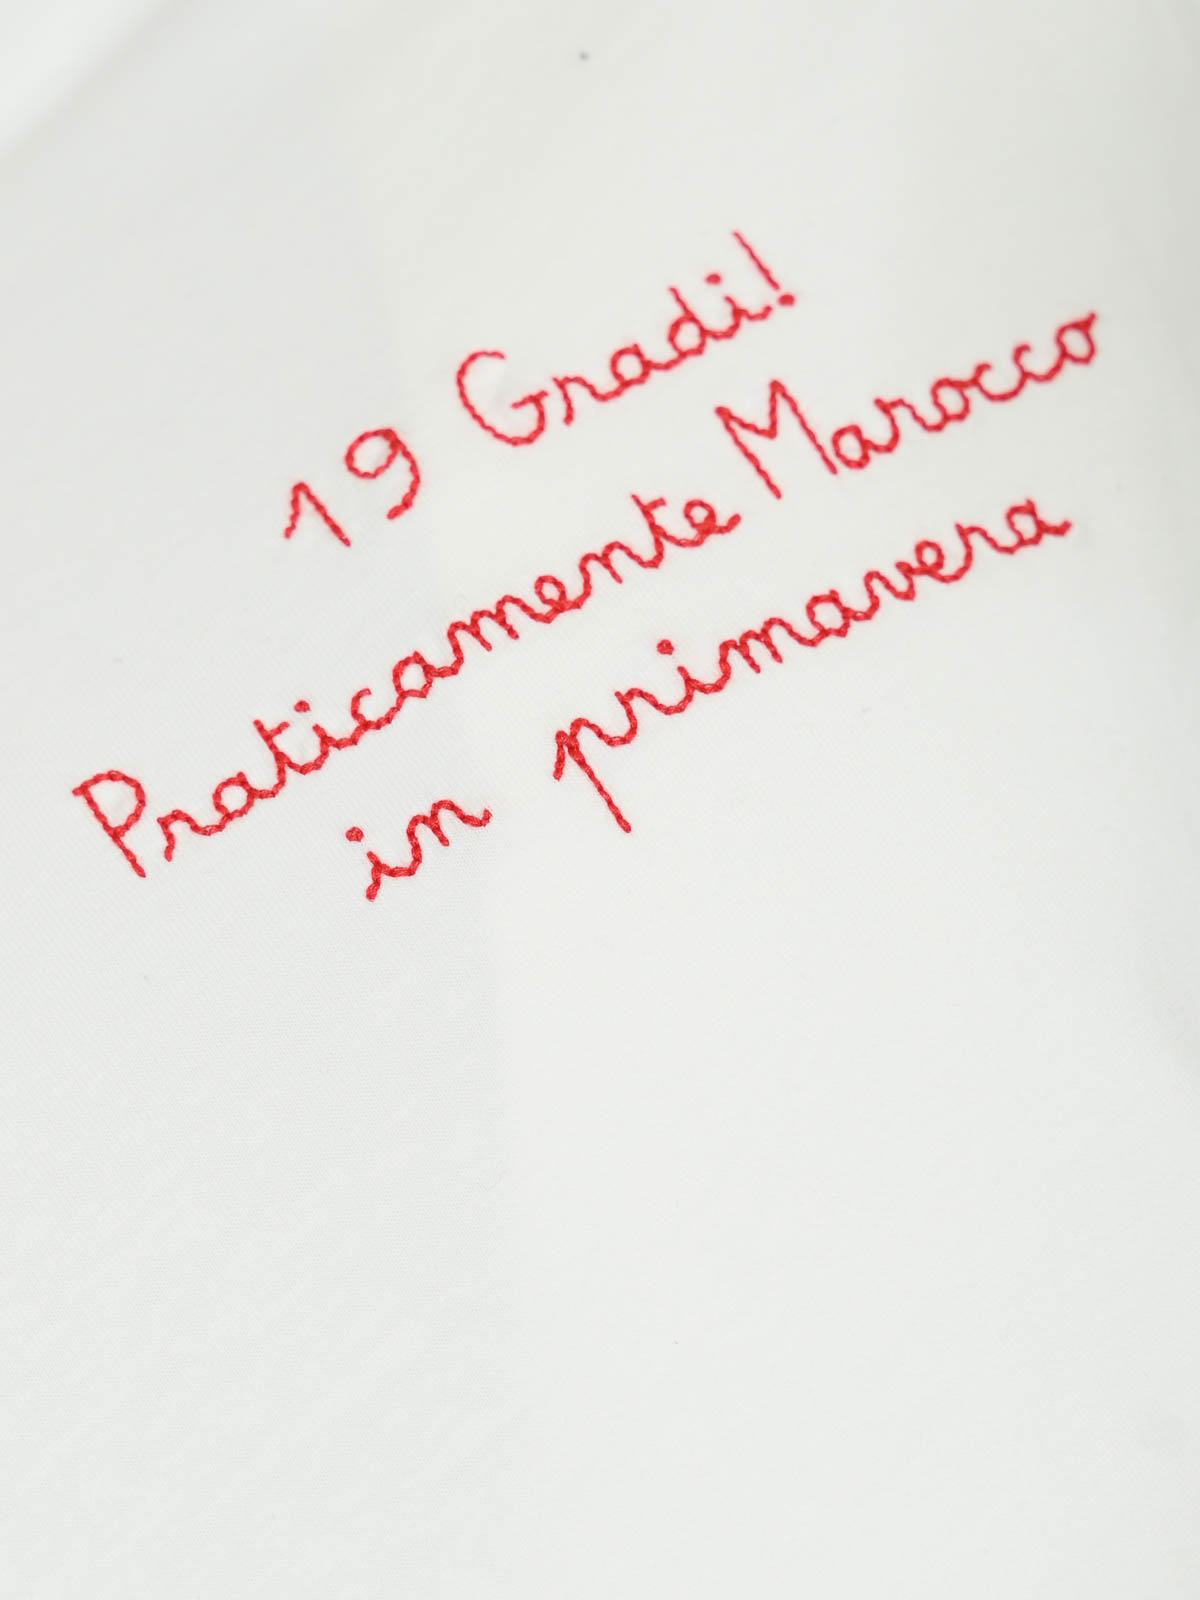 19 Gradi!
Praticamente Marocco
in primavera